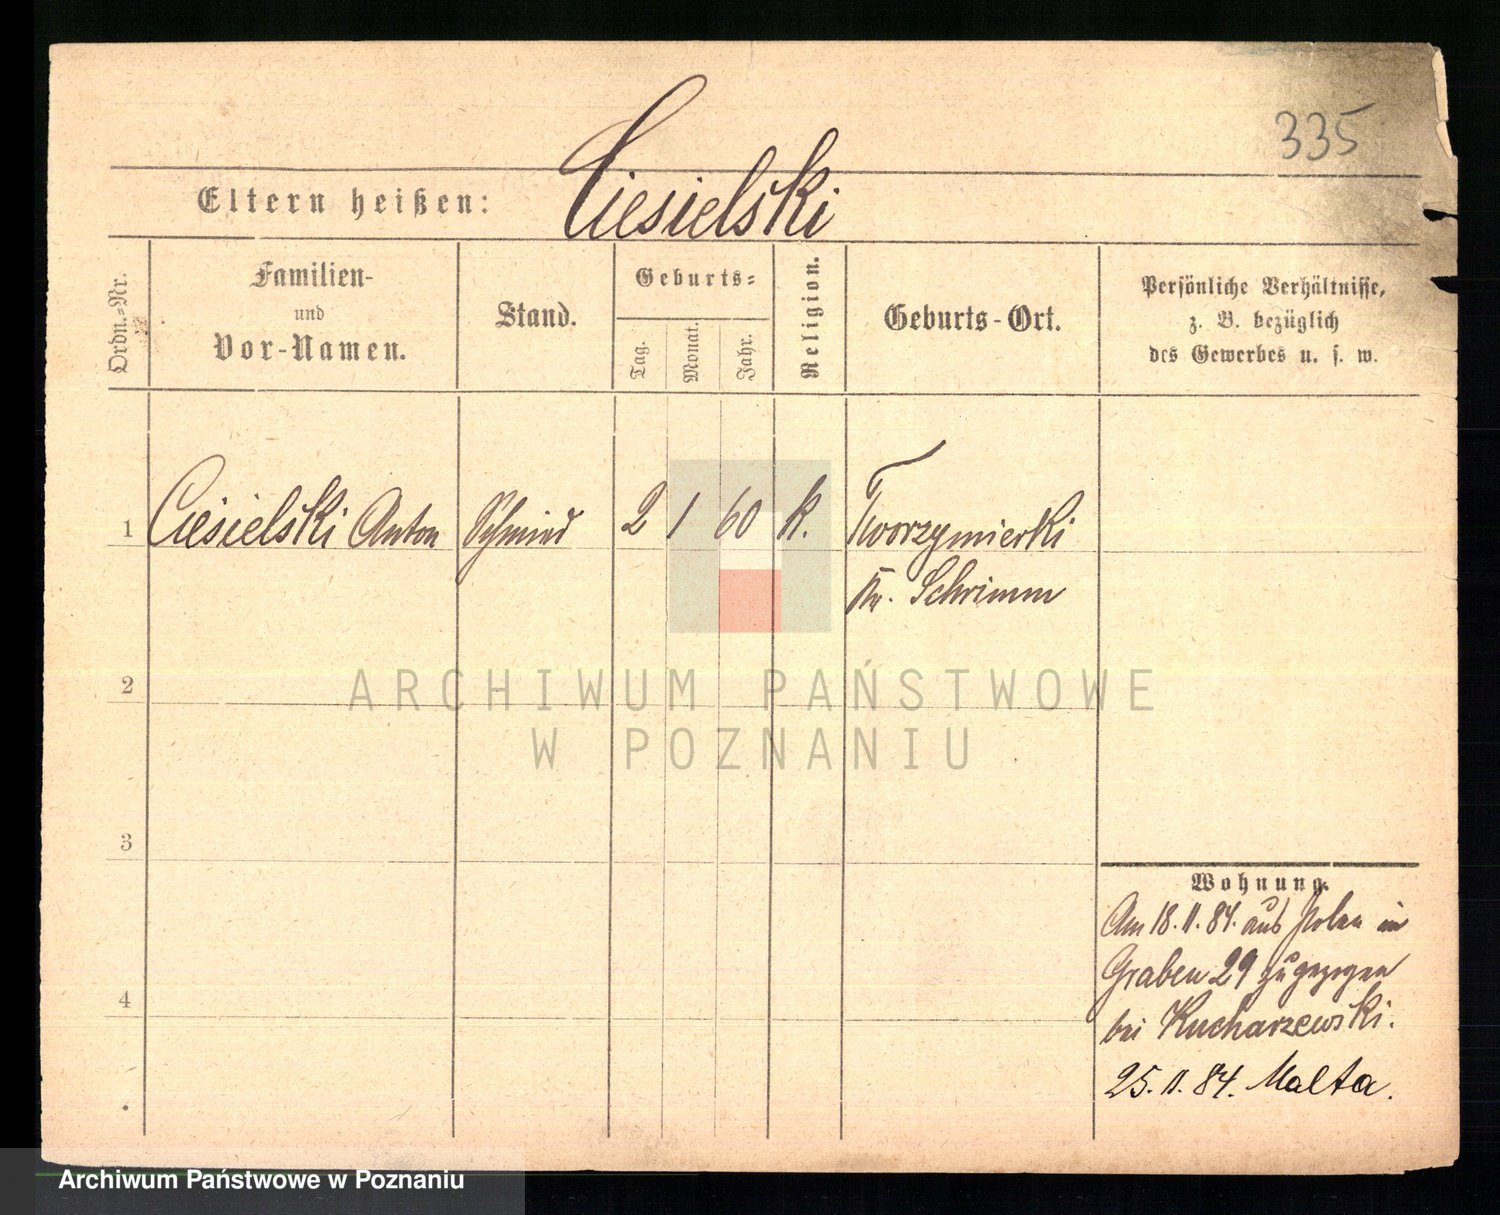 335
Eltern heißen: Ciesielski
Ordn.-Nr.
Familien-
und
Vor-Namen.
Stand.
Geburts-
Tag.
Monat.
Jahr.
Religion.
Geburts-Ort.
Persönliche Verhältnisse,
z. B. bezüglich
des Gewerbes u. s. w.
1 Ciesielski Anton Schmied 2 1 60 k. Tworzymierki
Kr. Schrimm
2
3
4
Wohnung.
Am 18.11.84. aus Polen in
Graben 29 zugezogen
bei Kucharzewski.
25.11.84. Malta.
ARCHIWUM PAŃSTWOWE
W POZNANIU
Archiwum Państwowe w Poznaniu